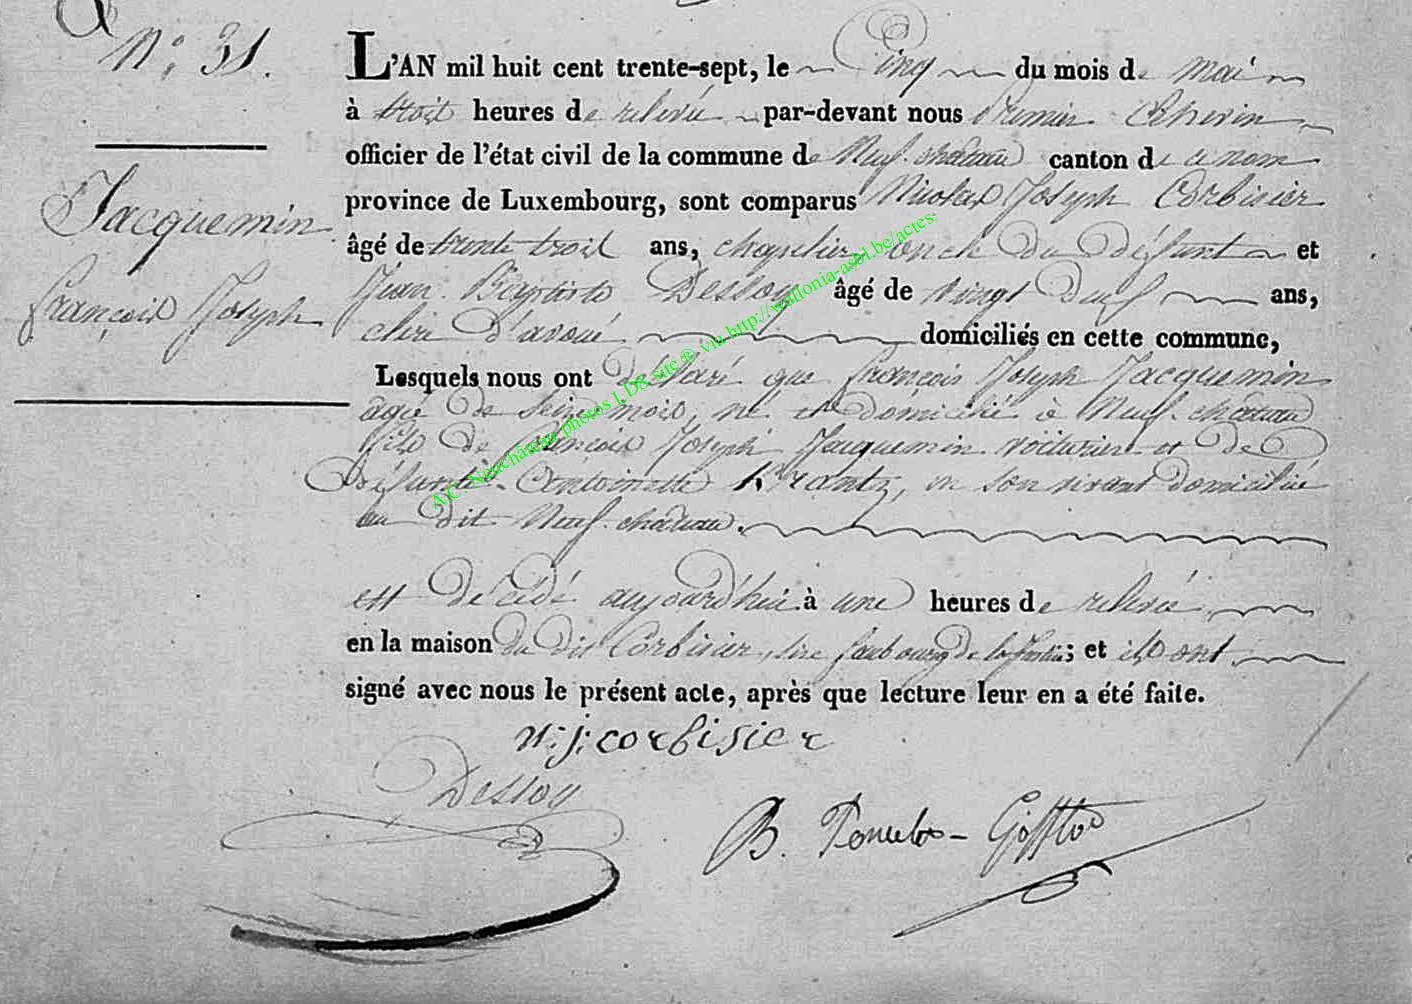 N.° 31.
Jacquemin
François Joseph
L'AN mil huit cent trente-sept, le Cinq du mois de mai
à trois heures de relevée par-devant nous Premier Echevin
officier de l'état civil de la commune de Neuf-chateau canton de ce nom
province de Luxembourg, sont comparus Nicolas Joseph Corbisier
âgé de trente trois ans, chapelier, oncle du défunt et
Jean Baptiste Dessoy âgé de vingt neuf ans,
clerc d'avoué domiciliés en cette commune,
Lesquels nous ont déclaré que François Joseph Jacquemin
âgé de seize mois, né et domicilié à Neuf-chateau
fils de François Joseph Jacquemin voiturier et de
défunte Antoinette Krantz, en son vivant domiciliée
au dit Neuf-chateau.
est décédé aujourd'hui à une heures de relevée
en la maison du dit Corbisier, sise faubourg de la ; et ils ont
signé avec nous le présent acte, après que lecture leur en a été faite.
n: j: corbisier
Dessoy
B.
A.C. Neufchâteau photos J. DG site ® via http://wallonia-asbl.be/actes.